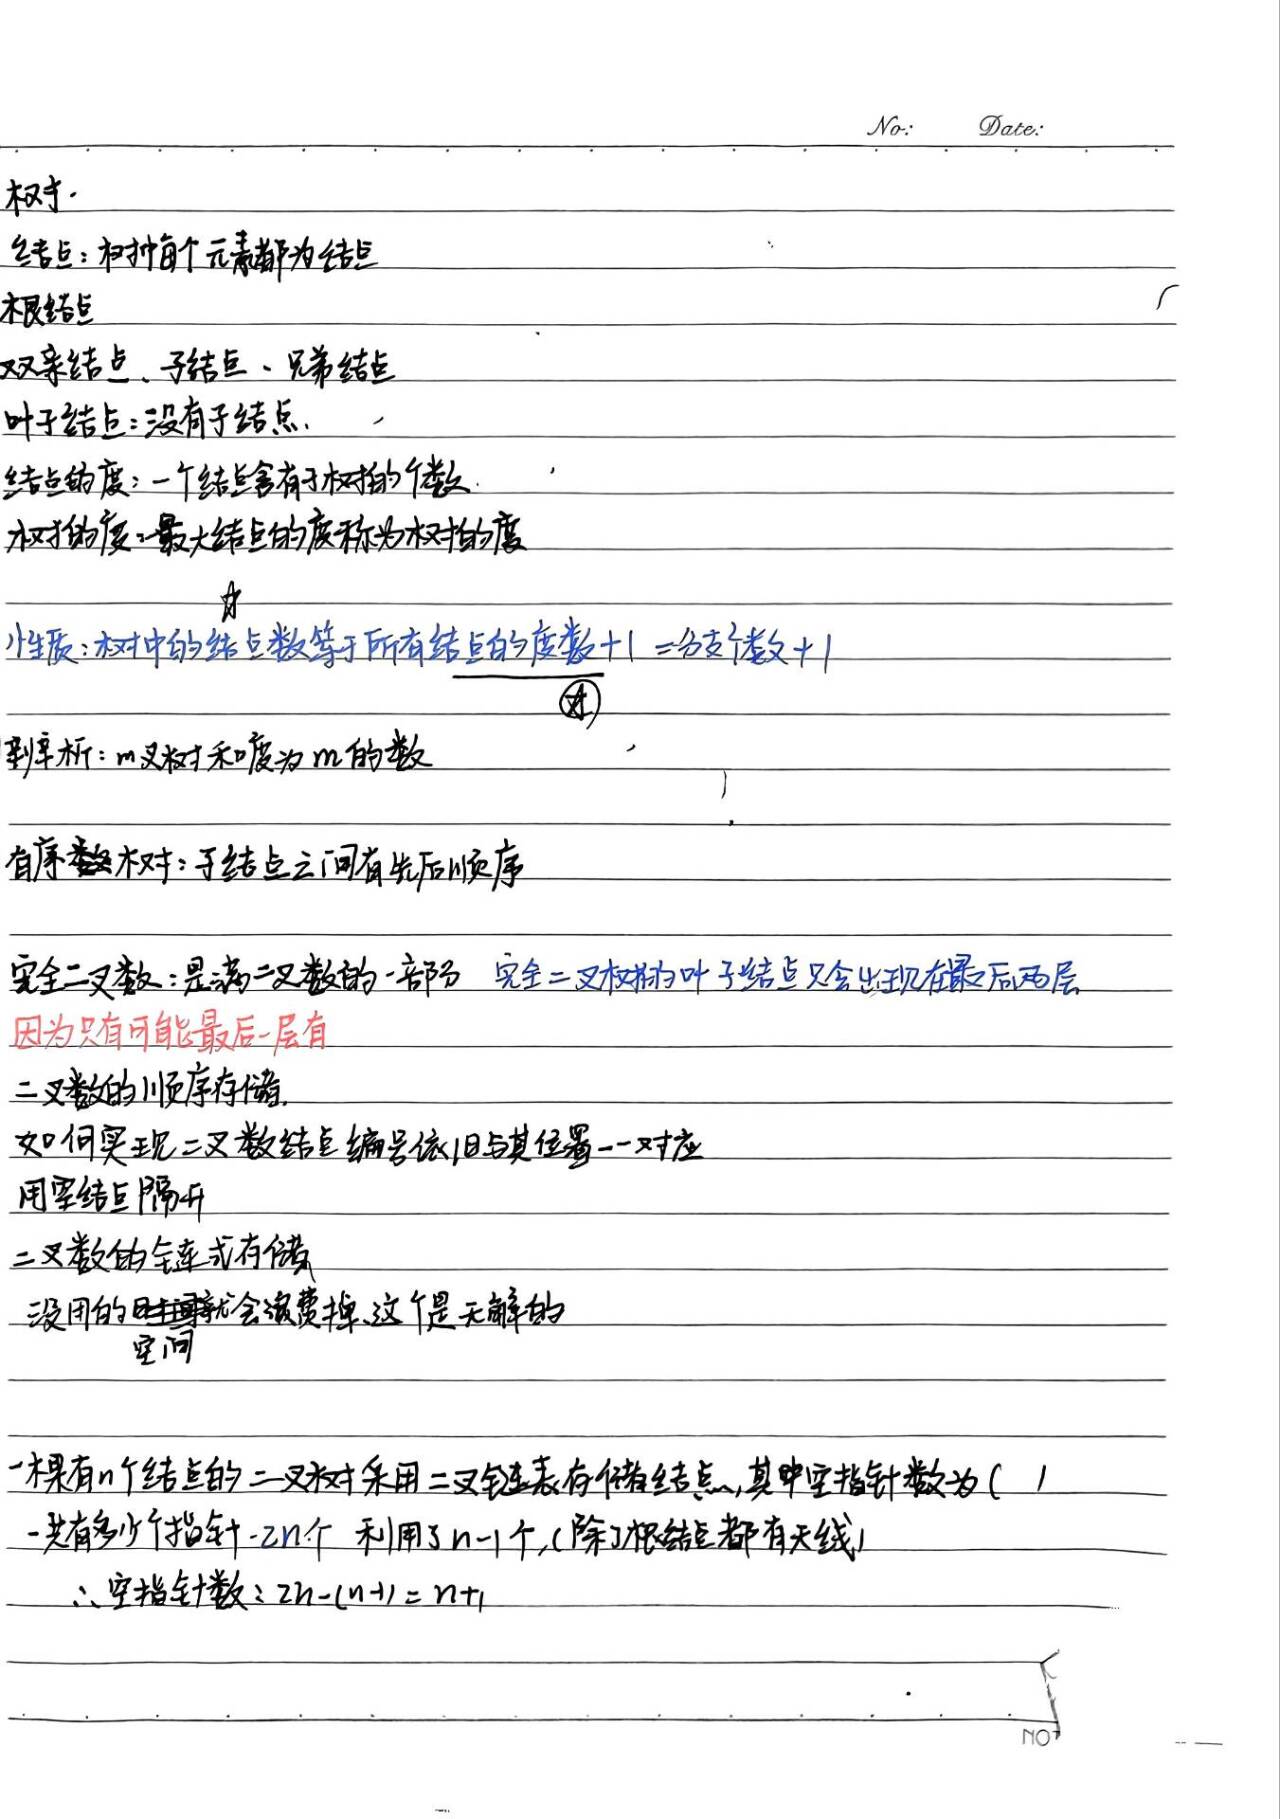 No: Date:
树.
结点：树中每个元素都为结点
根结点
双亲结点、子结点、兄弟结点
叶子结点：没有子结点.
结点的度：一个结点含有子树的个数.
树的度：最大结点的度称为树的度
☆
性质：树中的结点数等于所有结点的度数+1 =分支个数+1
☆
辛析：m叉树和度为m的数
有序树：子结点之间有先后顺序
完全二叉数：是满二叉数的一部分 完全二叉树的叶子结点只会出现在最后两层
因为只有可能最后一层有
二叉数的顺序存储.
如何实现二叉数结点编号依旧与其位置一一对应
用空结点隔开
二叉数的链式存储
没用的就会浪费掉、这个是无解的
空间
一棵有n个结点的二叉树采用二叉链表存储结点,其中空指针数为( )
一共有多少个指针.2n个 利用了n-1个,(除了根结点都有天线)
∴空指针数：2n-(n-1)=n+1
NO